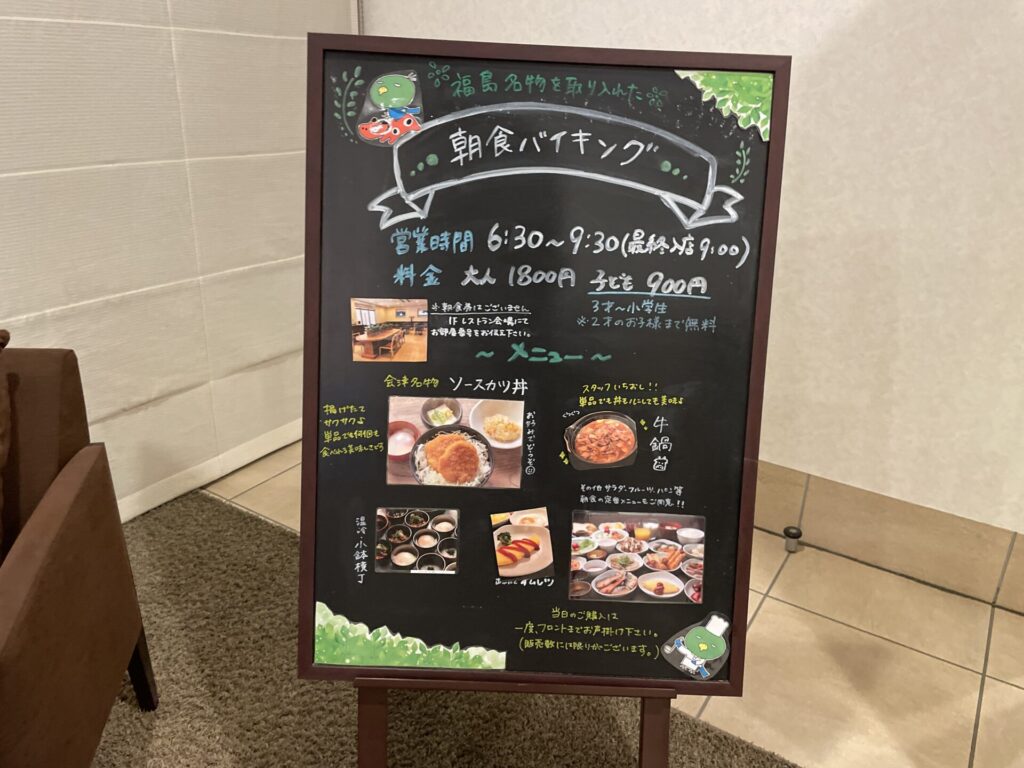 福島名物を取り入れた
朝食バイキング
営業時間 6:30～9:30(最終入店9:00)
料金 大人 1800円 子ども 900円
3才～小学生
※2才のお子様まで無料
※朝食券はございません
1F レストラン会場にて
お部屋番号をお伝え下さい。
～メニュー～
会津名物 ソースカツ丼
揚げたて
サクサクよ
単品でも何個も
食べれる美味しさどう
お好みでどうぞ
スタッフいちおし!!
単品でも丼ものにしても美味よ
ぐつぐつ
牛鍋
その他 サラダ、フルーツ、パン等
朝食の定番メニューもご用意!!
温冷・小鉢横丁
オムレツ
当日のご購入は
一度、フロントまでお声掛け下さい。
(販売数には限りがございます。)